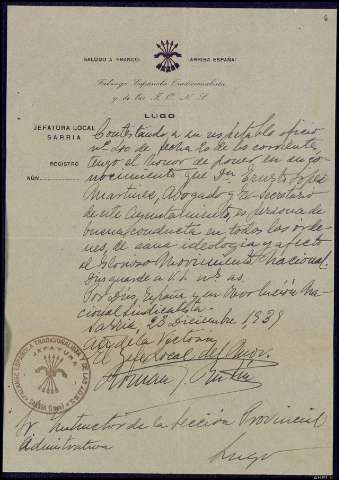 6
SALUDO A FRANCO: ARRIBA ESPAÑA!
Falange Española Tradicionalista
y de las J. O. N. S.
LUGO
JEFATURA LOCAL
SARRIA
REGISTRO
NÚM.
Contestando a su respetable oficio
nº de fecha 20 de los corrientes,
tengo el honor de poner en su co-
nocimiento que Dn. Ernesto López
Martinez, Abogado y Ex-Secretario
de este Ayuntamiento, es persona de
buena conducta en todos los órde-
nes, de sana ideologia y afecto
al Glorioso Movimiento Nacional.
Dios guarde a V. I. ms. as.
Por Dios, España y su Revolución Na-
cional sindicalista.
Sarria, 23 Diciembre 1939
Año de la Victoria
El Jefe local del Mov.
Roman J.
FALANGE ESPAÑOLA TRADICIONALISTA Y DE LAS J.O.N.S.
JEFATURA
SARRIA (LUGO)
Sr Instructor de la Sección Provincial
Administrativa
Lugo